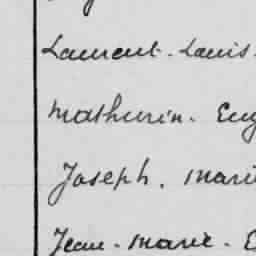 Laurent. Louis.
Mathurin. Eug
Joseph. Mari
Jean-Marie. E